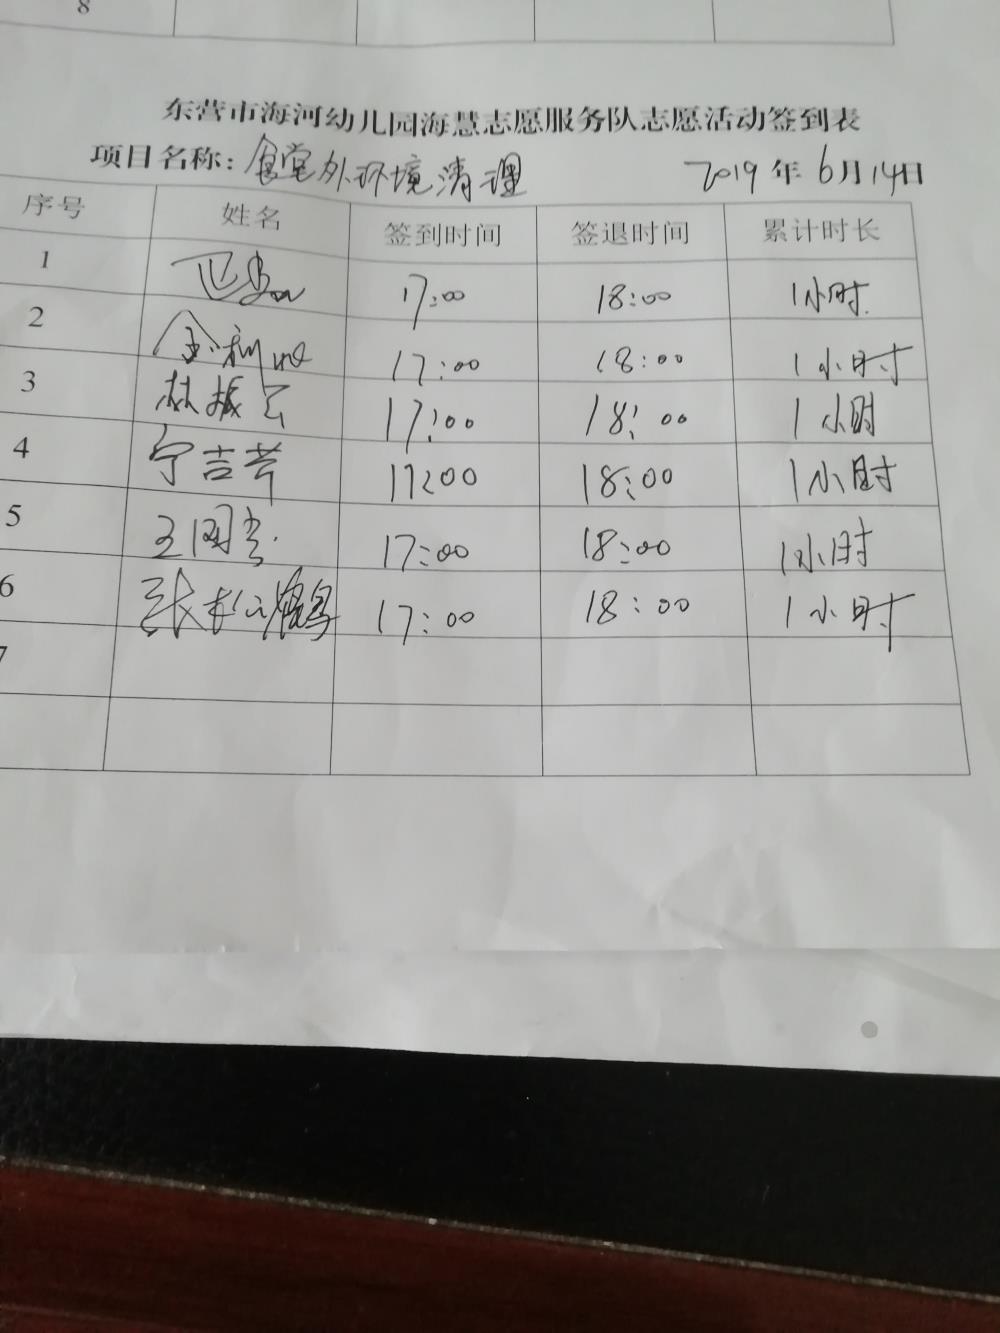 8
东营市海河幼儿园海慧志愿服务队志愿活动签到表
项目名称：食堂外环境清理 2019年6月14日
序号 姓名 签到时间 签退时间 累计时长
1 17:00 18:00 1小时
2 17:00 18:00 1小时
3 林振 17:00 18:00 1小时
4 宁吉芹 17:00 18:00 1小时
5 王国 17:00 18:00 1小时
6 张松鹤 17:00 18:00 1小时
7